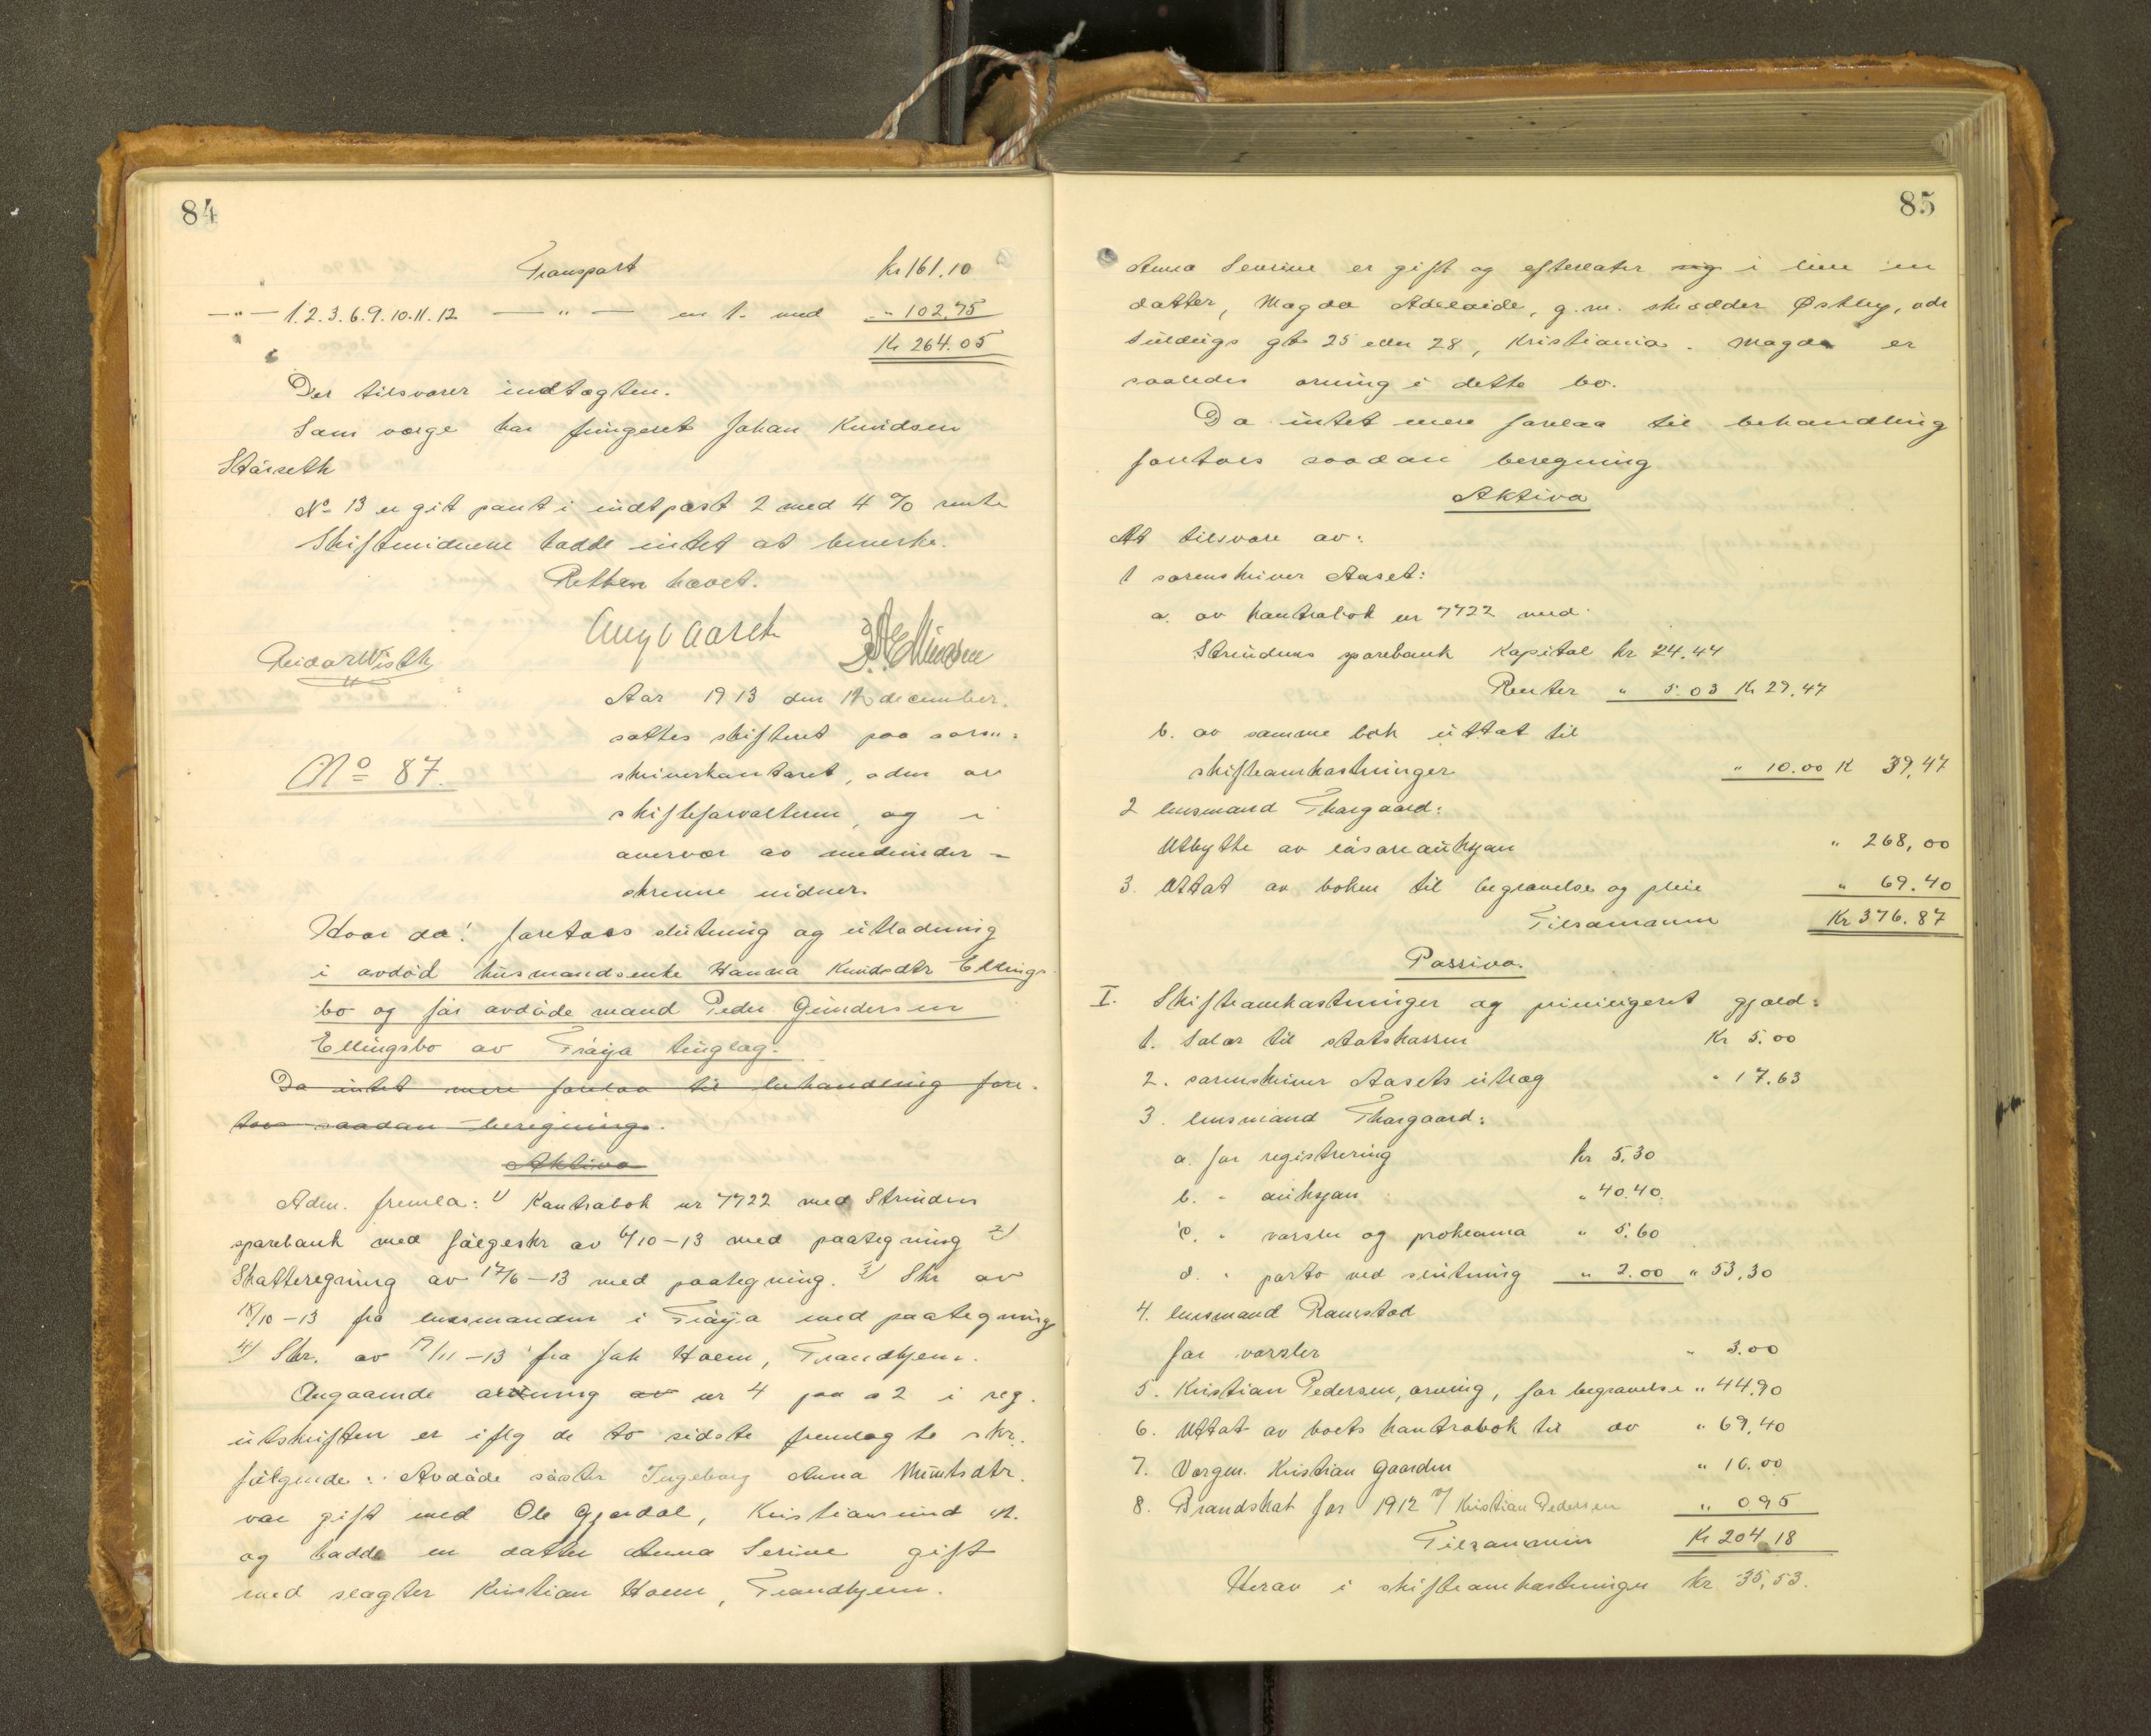 84
Transport kr 161.10
—"— 1.2.3.6.9.10.11.12 —"— nr 1. med " 102.95
Kr 264.05
Der tilsvarer indtægten.
Som værge har fungeret Johan Knudsen
Størseth
No 13 er git pant i indtpost 2 med 4 % rente
Skiftevidnene hadde intet at bemerke.
Retten hævet.
Aug Aaset
Reidar Wisth
Aar 1913 den 12 december.
sattes skifteret paa soren:
skriverkontoret, adm av
No 87.
skifteforvalteren, og i
overvær av medunder-
skrevne vidner.
Hvor da! foretoes slutning og utlodning
i avdød husmandsenke Hanna Knudsdtr Ellings-
bo og før avdøde mand Peder Gundersen
Ellingsbo av Frøya tinglag.
Da intet mere forelaa til behandling fore-
toes saadan beregning.
Aktiva
Adm. fremla: 1) Kontrabok nr 7722 med Strinden
sparebank med følgeskr av 6/10-13 med paategning 2)
Skatteregning av 17/6-13 med paategning. 3) Skr av
18/10-13 fra lensmanden i Frøya med paategning
4) Skr. av 17/11-13 fra Joh Hoem, Trondhjem.
Angaaende arving av nr 4 paa a 2 i reg.
utskriften er iflg de to sidste fremlagte skr.
følgende: Avdøde søster Ingeborg Anna Muntsdtr.
var gift med Ole Gjerdal, Kristiansund N.
og hadde en datter Anna Serine gift
med slagter Kristian Hoem, Trondhjem.
85
Anna Sevrine er gift og efterlater sig i live en
datter, Magda Adelaide, g.m. skrædder Østby, adr
Tullings gt 25 eller 28, Kristiania. Magda er
saaledes arving i dette bo.
Da intet mere forelaa til behandling
foretoes saadan beregning
Aktiva
At tilsvare av:
1 sorenskriver Aaset:
a. av kontrabok nr 7722 med
Strindens sparebank Kapital kr 24.44
Renter " 5.03 Kr 29.47
b. av samme bok uttat til
skifteomkostninger " 10.00 K 39,47
2 lensmand Thorgaard:
Utbytte av løsøreauksjon " 268,00
3. Uttat av boken til begravelse og pleie " 69.40
Tilsammen Kr 376.87
Passiva.
I. Skifteomkostninger og privilegeret gjæld:
1. Salær til statskassen Kr 5.00
2. sorenskriver Aasets utlæg " 17.63
3. lensmand Thorgaard:
a. for registrering kr 5.30
b. " auksjon " 40.40.
c. " varsler og proklama " 5.60
d. " porto ved slutning " 2.00 " 53,30
4. lensmand Ramstad
for varsler " 3.00
5. Kristian Pedersen, arving, for begravelse " 44.90
6. Uttat av boets kontrabok til do " 69,40
7. Vergen Kristian Gaarden " 10.00
8. Brandskat for 1912 v/ Kristian Pedersen " 0 95
Tilsammen Kr 204.18
Herav i skifteomkostninger kr 35,53.